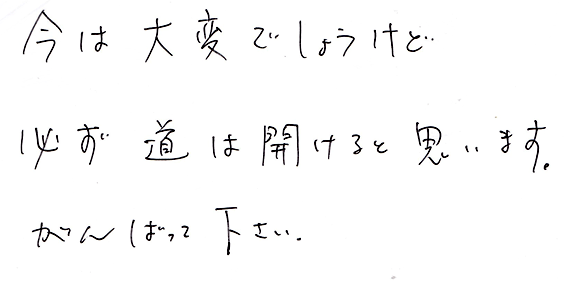 今は大変でしょうけど
必ず道は開けると思います。
がんばって下さい.